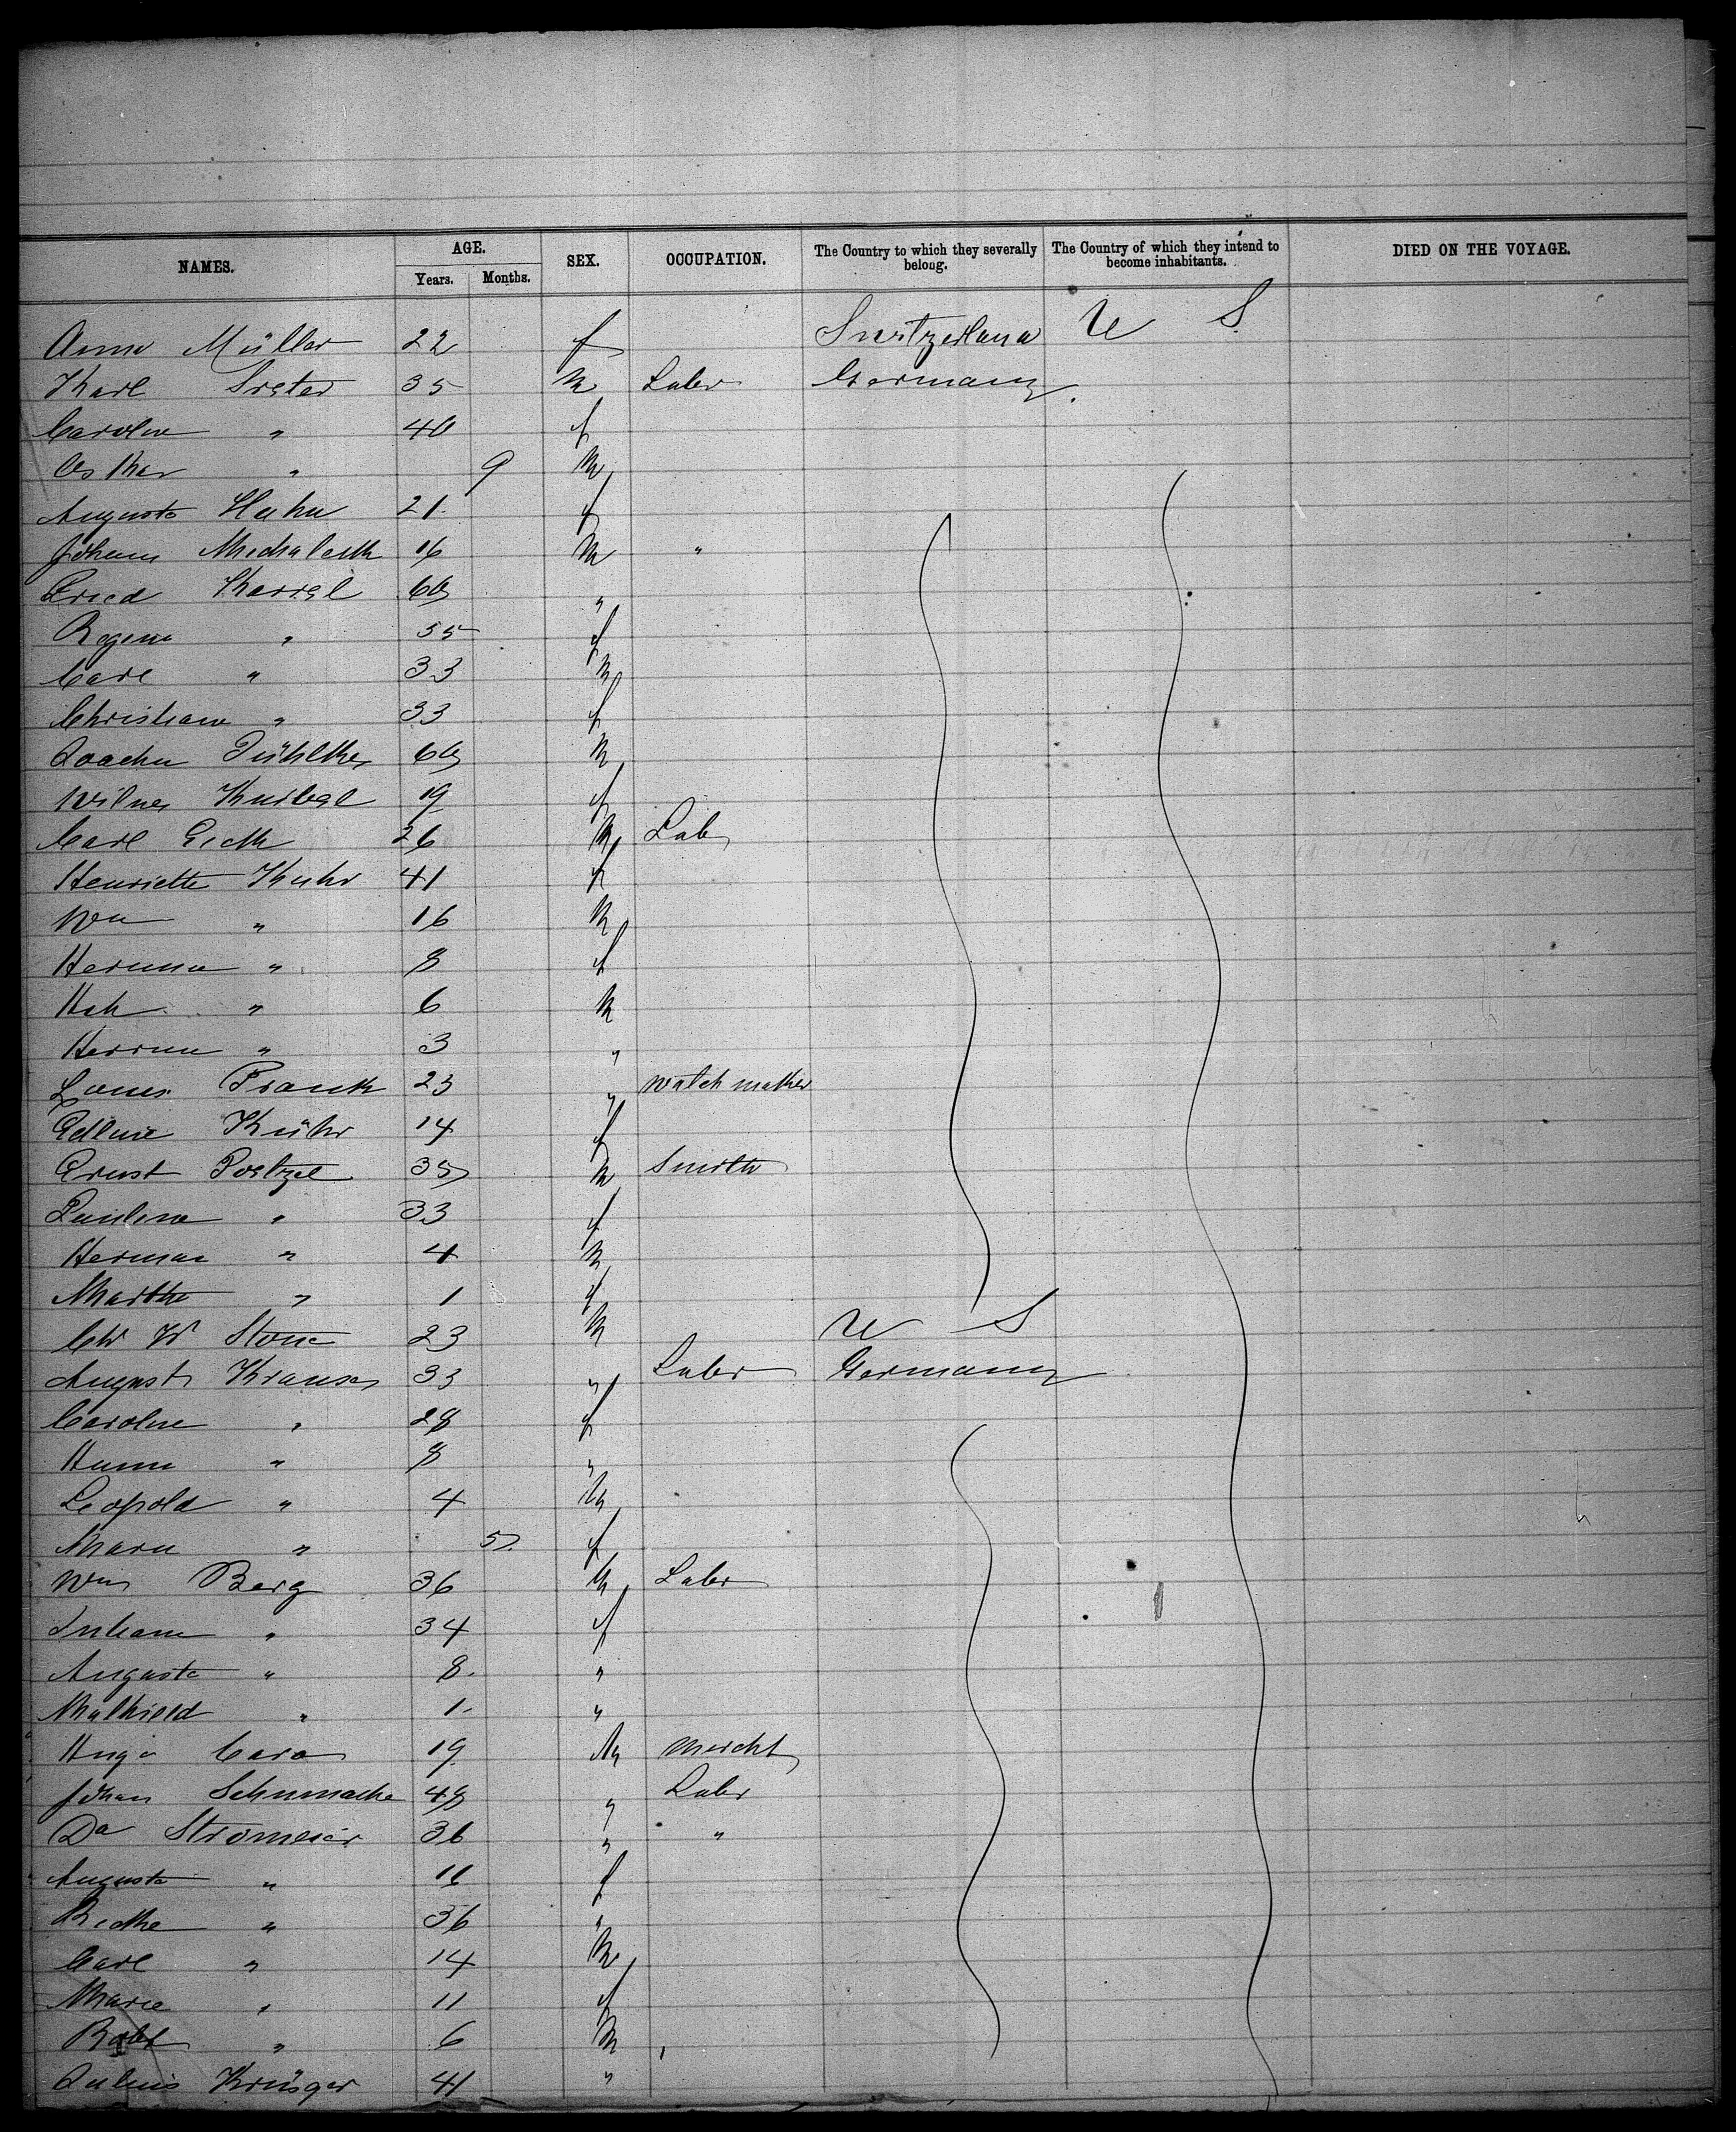 NAMES. AGE. SEX. OCCUPATION. The Country to which they severally belong. The Country of which they intend to become inhabitants. DIED ON THE VOYAGE.
Years. Months.
Anna Müller 22 f Switzerland U S
Karl 35 m Labr Germany
Caroline " 40 f
Oskar " 9 m
Augusta Hahn 21 f
Johann 16 m "
Fried 60 "
Regina " 55 f
Carl " 33 m
Christiane " 33 f
Joachm 60 m
19 f
Carl 26 m Lab
Henriette Kuhr 41 f
Wm " 16 m
Hermine " 8 f
" 6 m
Herrm " 3 "
Louis Frank 23 " Watch maker
Kühr 14 f
Ernst Poetzel 35 m Smith
Pauline " 33 f
Herman " 4 m
Martha " 1 f
Ch W Stone 23 m U S
August Krause 33 " Labr Germany
Caroline " 28 f
" 8 "
Leopold " 4 m
Marie " 5 f
Wm Berg 36 m Labr
Juliane " 34 f
Augusta " 8 "
Mathield " 1 "
Hugo Caro 19 m Mercht
Johan Schumache 48 " Labr
Da Stromeier 36 " "
Augusta " f
" 36 "
Carl " 14 m
Marie " 11 f
Robt " 6 m
Julius Krüger 41 "